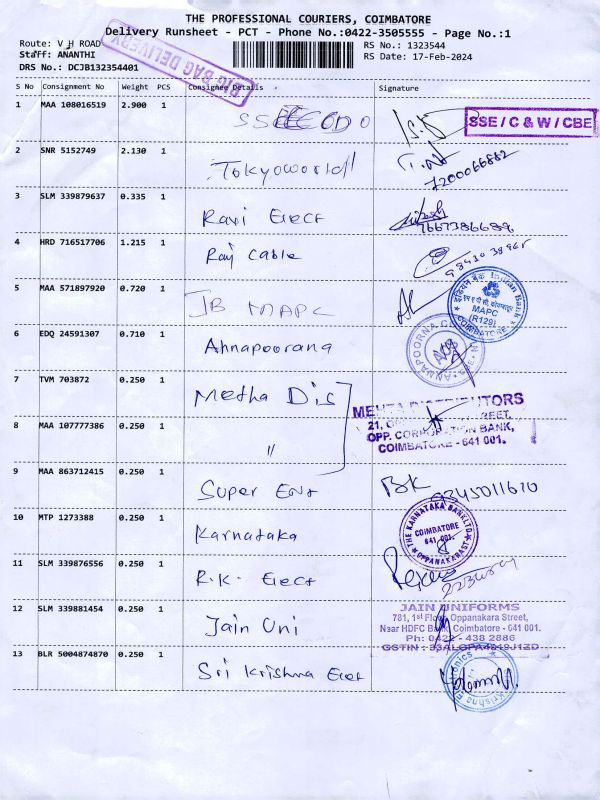 THE PROFESSIONAL COURIERS, COIMBATORE
Delivery Runsheet - PCT - Phone No.:0422-3505555 - Page No.:1
Route: V H ROAD
RS No.: 1323544
Staff: ANANTHI
RS Date: 17-Feb-2024
DRS No.: DCJB132354401
BIG BAG DELIVERY
S No Consignment No Weight PCS Consignee Details Signature
1 MAA 108016519 2.900 1
SSE/C & W/CBE
2 SNR 5152749 2.130 1 Tokyoworld
7200066862
3 SLM 339879637 0.335 1 Ravi Elect
7667386689
4 HRD 716517706 1.215 1 Raj Cable
5 MAA 571897920 0.720 1 IB MAPC
Indian Bank
MAPC
(R129)
COIMBATORE
6 EDQ 24591307 0.710 1 Annapoorana
7 TVM 703872 0.250 1 Metha Dis
MEHTA DISTRIBUTORS
OPP. CORPORATION BANK,
COIMBATORE - 641 001.
8 MAA 107777386 0.250 1 "
9 MAA 863712415 0.250 1 Super Ent BK
10 MTP 1273388 0.250 1 Karnataka
THE KARNATAKA BANK LTD.
COIMBATORE
641 001.
11 SLM 339876556 0.250 1 R.K. Elect
12 SLM 339881454 0.250 1 Jain Uni
JAIN UNIFORMS
781, 1st Floor, Oppanakara Street,
Near HDFC Bank, Coimbatore - 641 001.
Ph: 0422 - 438 2886
GSTIN :
13 BLR 5004874870 0.250 1 Sri Krishna Elect